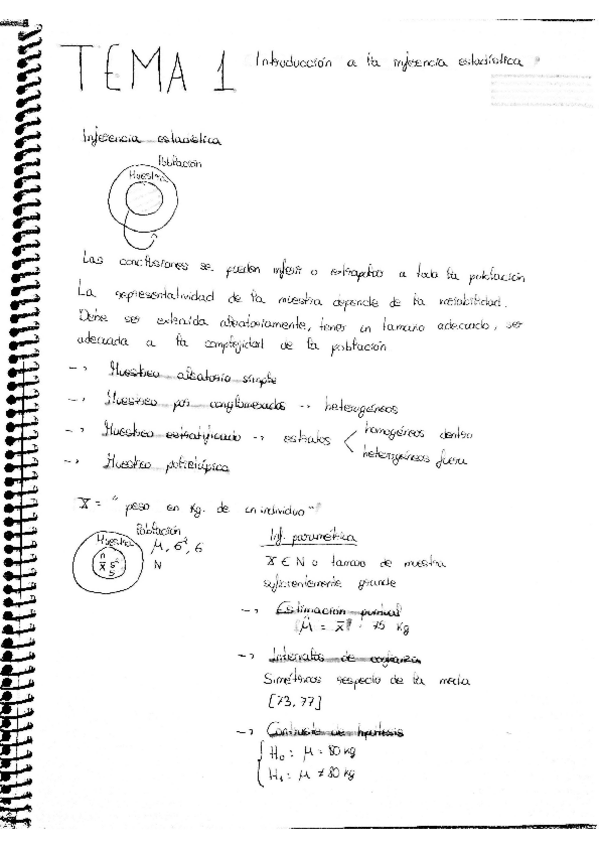 TEMA 1 Introducción a la inferencia estadística
Inferencia estadística
Población
Muestra
Las conclusiones se pueden inferir o extrapolar a toda la población
La representatividad de la muestra depende de la variabilidad.
Debe ser extraída aleatoriamente, tener un tamaño adecuado, ser
adecuada a la complejidad de la población
-> Muestreo aleatorio simple
-> Muestreo por conglomerados -> heterogéneos
-> Muestreo estratificado -> estratos < homogéneos dentro
heterogéneos fuera
-> Muestreo polietápico
X = "peso en Kg. de un individuo"
Población
Muestra μ, σ², σ
n
x̄ s²
s
N
Inf. paramétrica
X ∈ N o tamaño de muestra
suficientemente grande
-> Estimación puntual
μ̂ = x̄ = 75 kg
-> Intervalos de confianza
Simétricos respecto de la media
[73, 77]
-> Contraste de hipótesis
H₀: μ = 80 kg
H₁: μ ≠ 80 kg